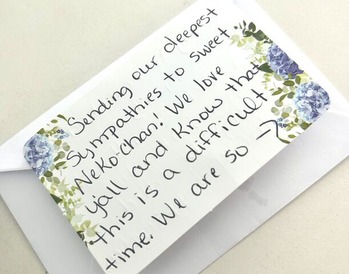 Sending our deepest
Sympathies to sweet
Neko-chan! We love
y'all and know that
this is a difficult
time. We are so →